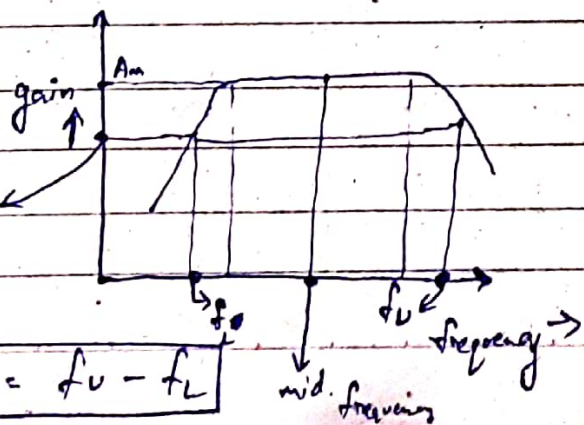 Am
gain
↑
f
fu
frequency →
= fu - fL
mid. frequency